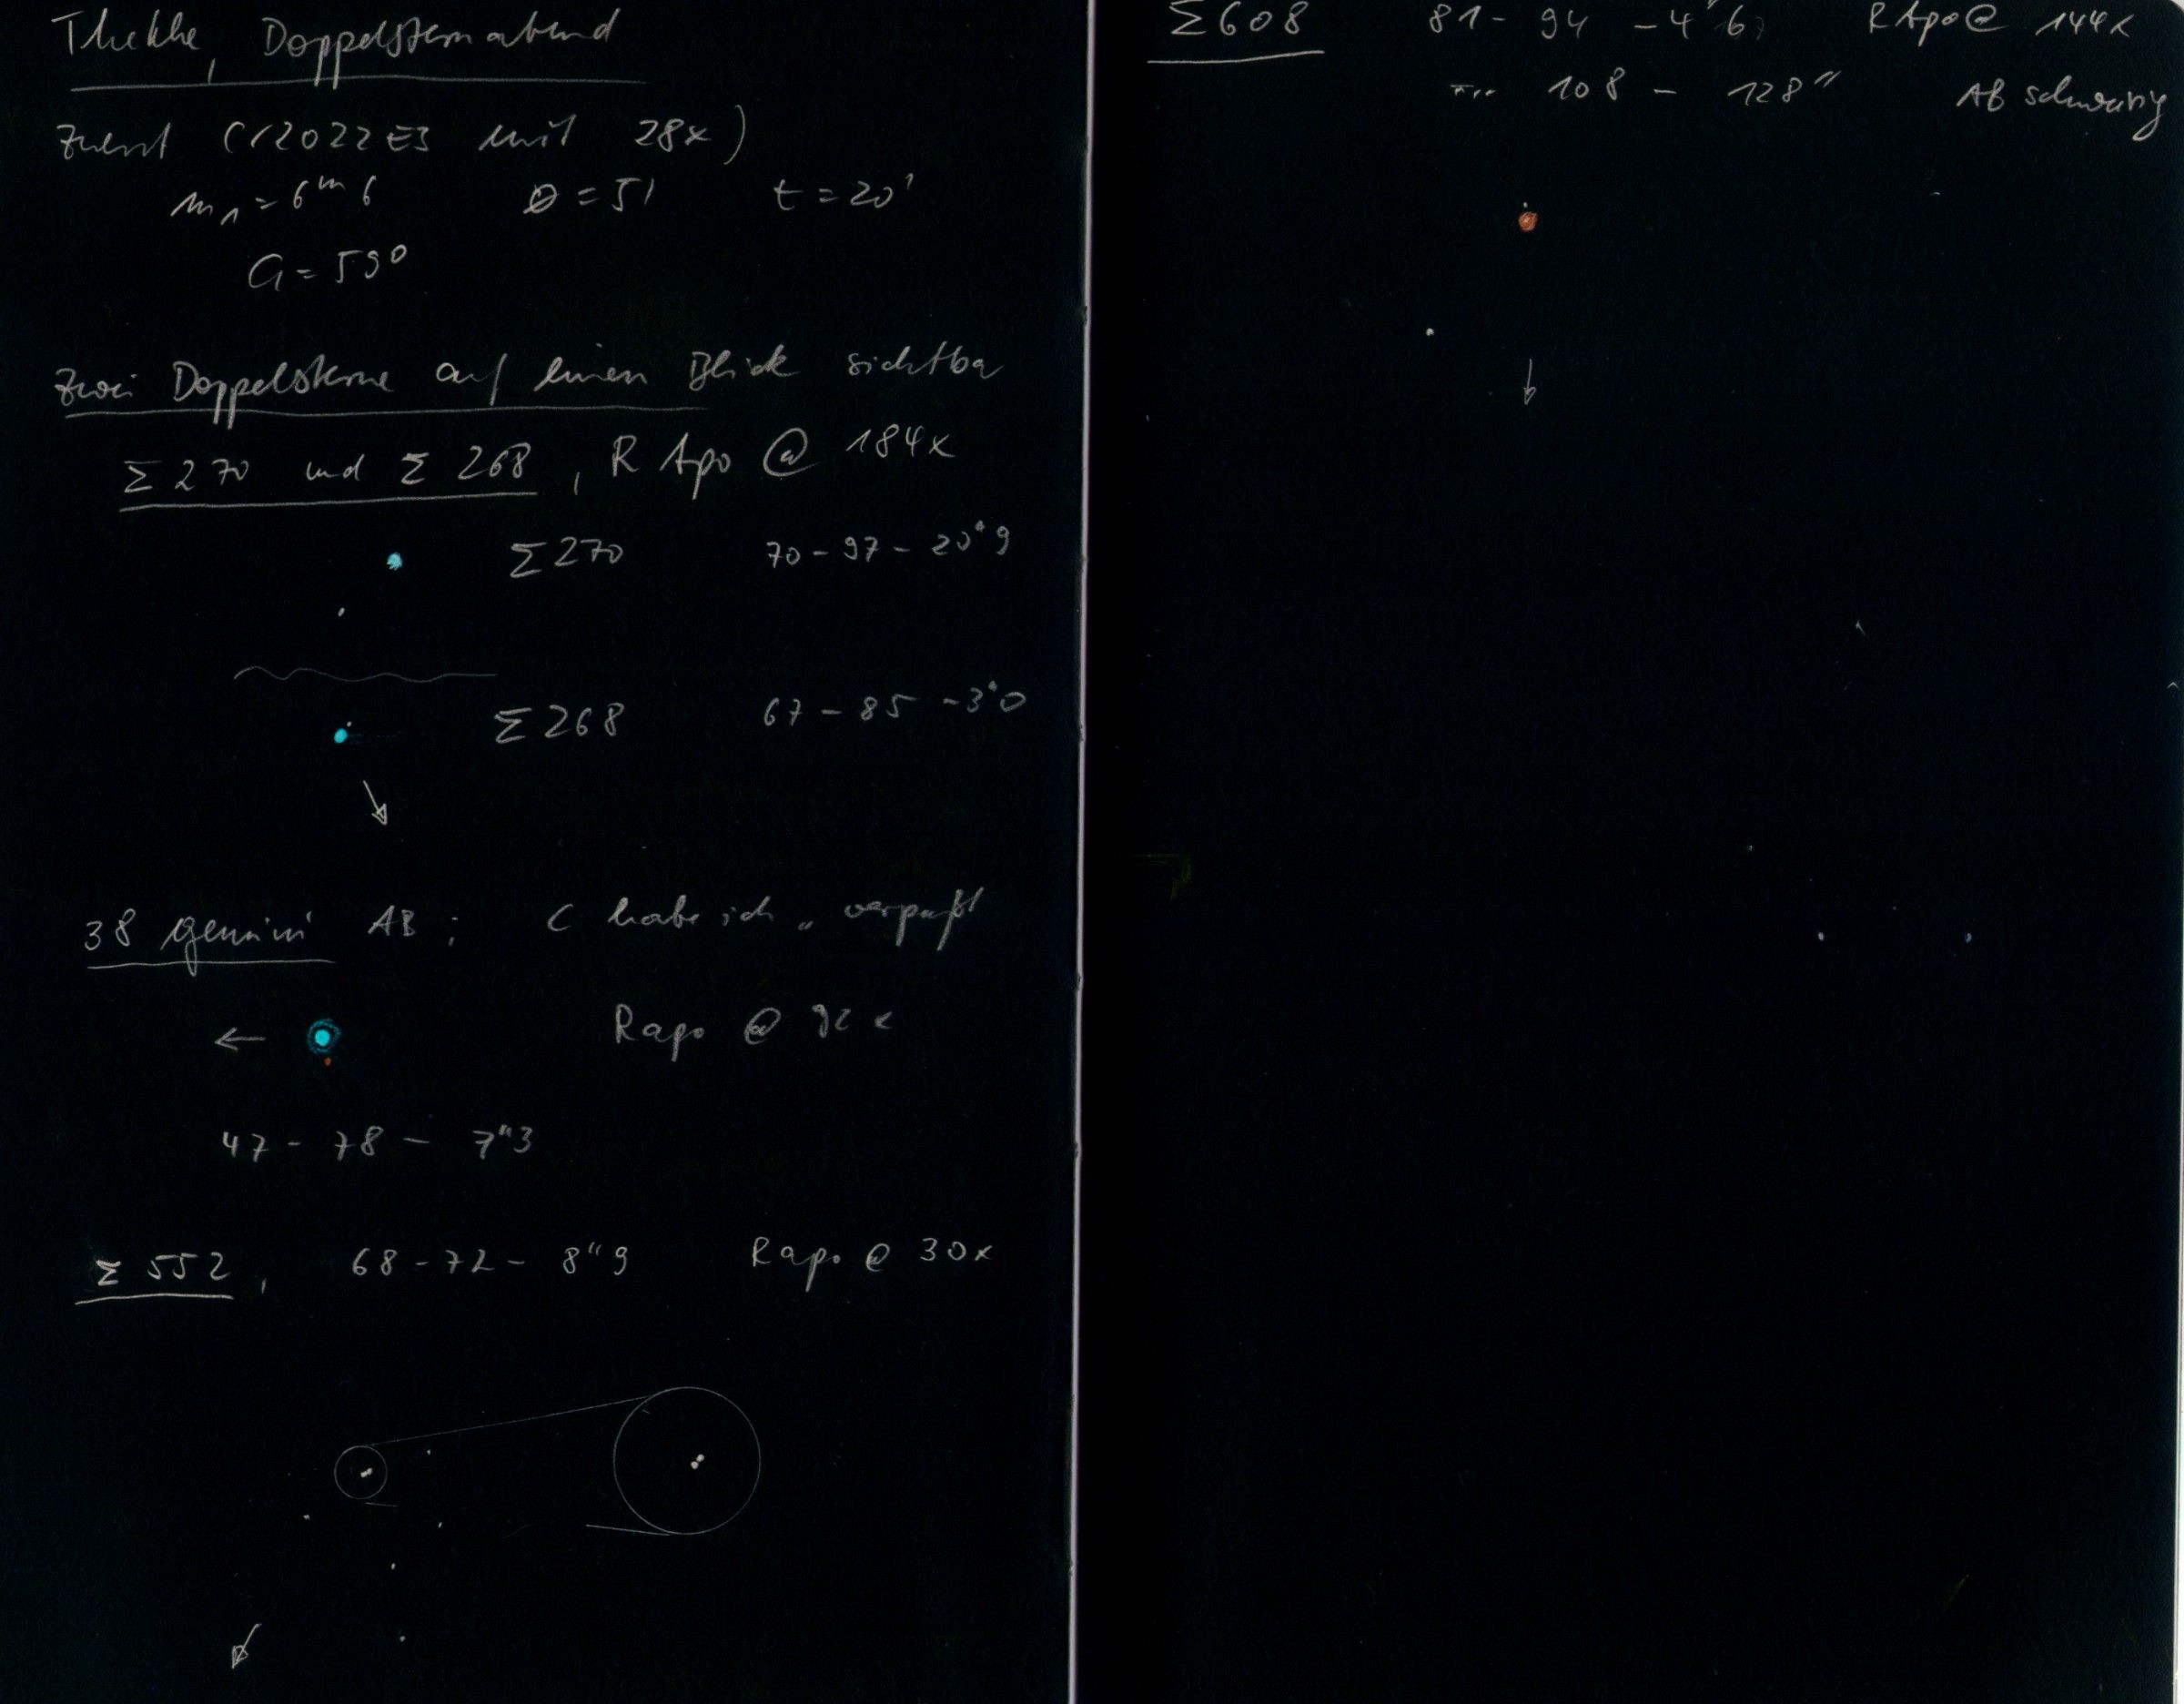 Doppelsternabend
zuerst C/2022E3 mit 28x)
m1 = 6m6 Ø = 5' t = 20'
G = 59°
Zwei Doppelsterne auf einen Blick sichtbar
Σ270 und Σ268, R Apo @ 184x
Σ270 70 - 97 - 20"9
Σ268 67 - 85 - 3"0
38 gemini AB; C habe ich „verpaßt
Rapo @ 92x
47 - 78 - 7"3
Σ 552, 68 - 72 - 8"9 Rapo @ 30x
Σ608 81 - 94 - 4"6, R Apo @ 144x
108 - 128" AB schwierig